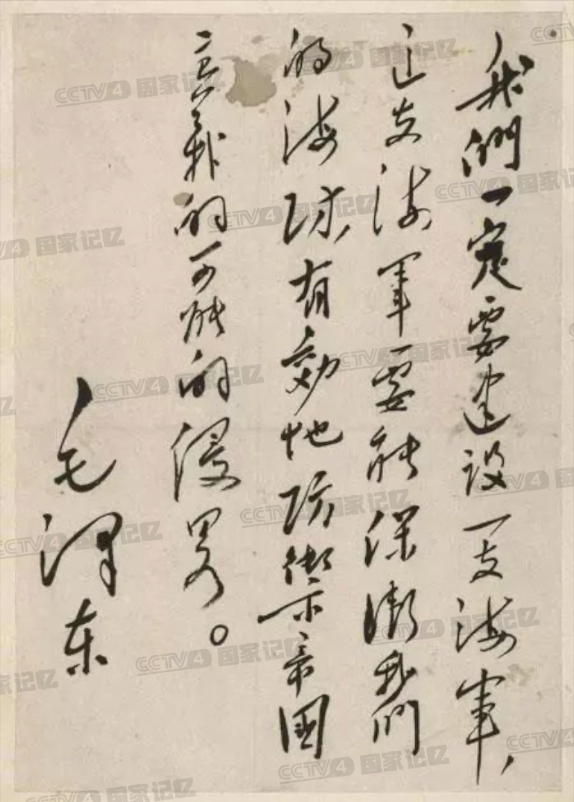 我們一定要建设一支海軍，
这支海軍要能保衛我們
的海防，有効地防御帝國
主義的可能的侵畧。
毛泽东
CCTV4 国家记忆